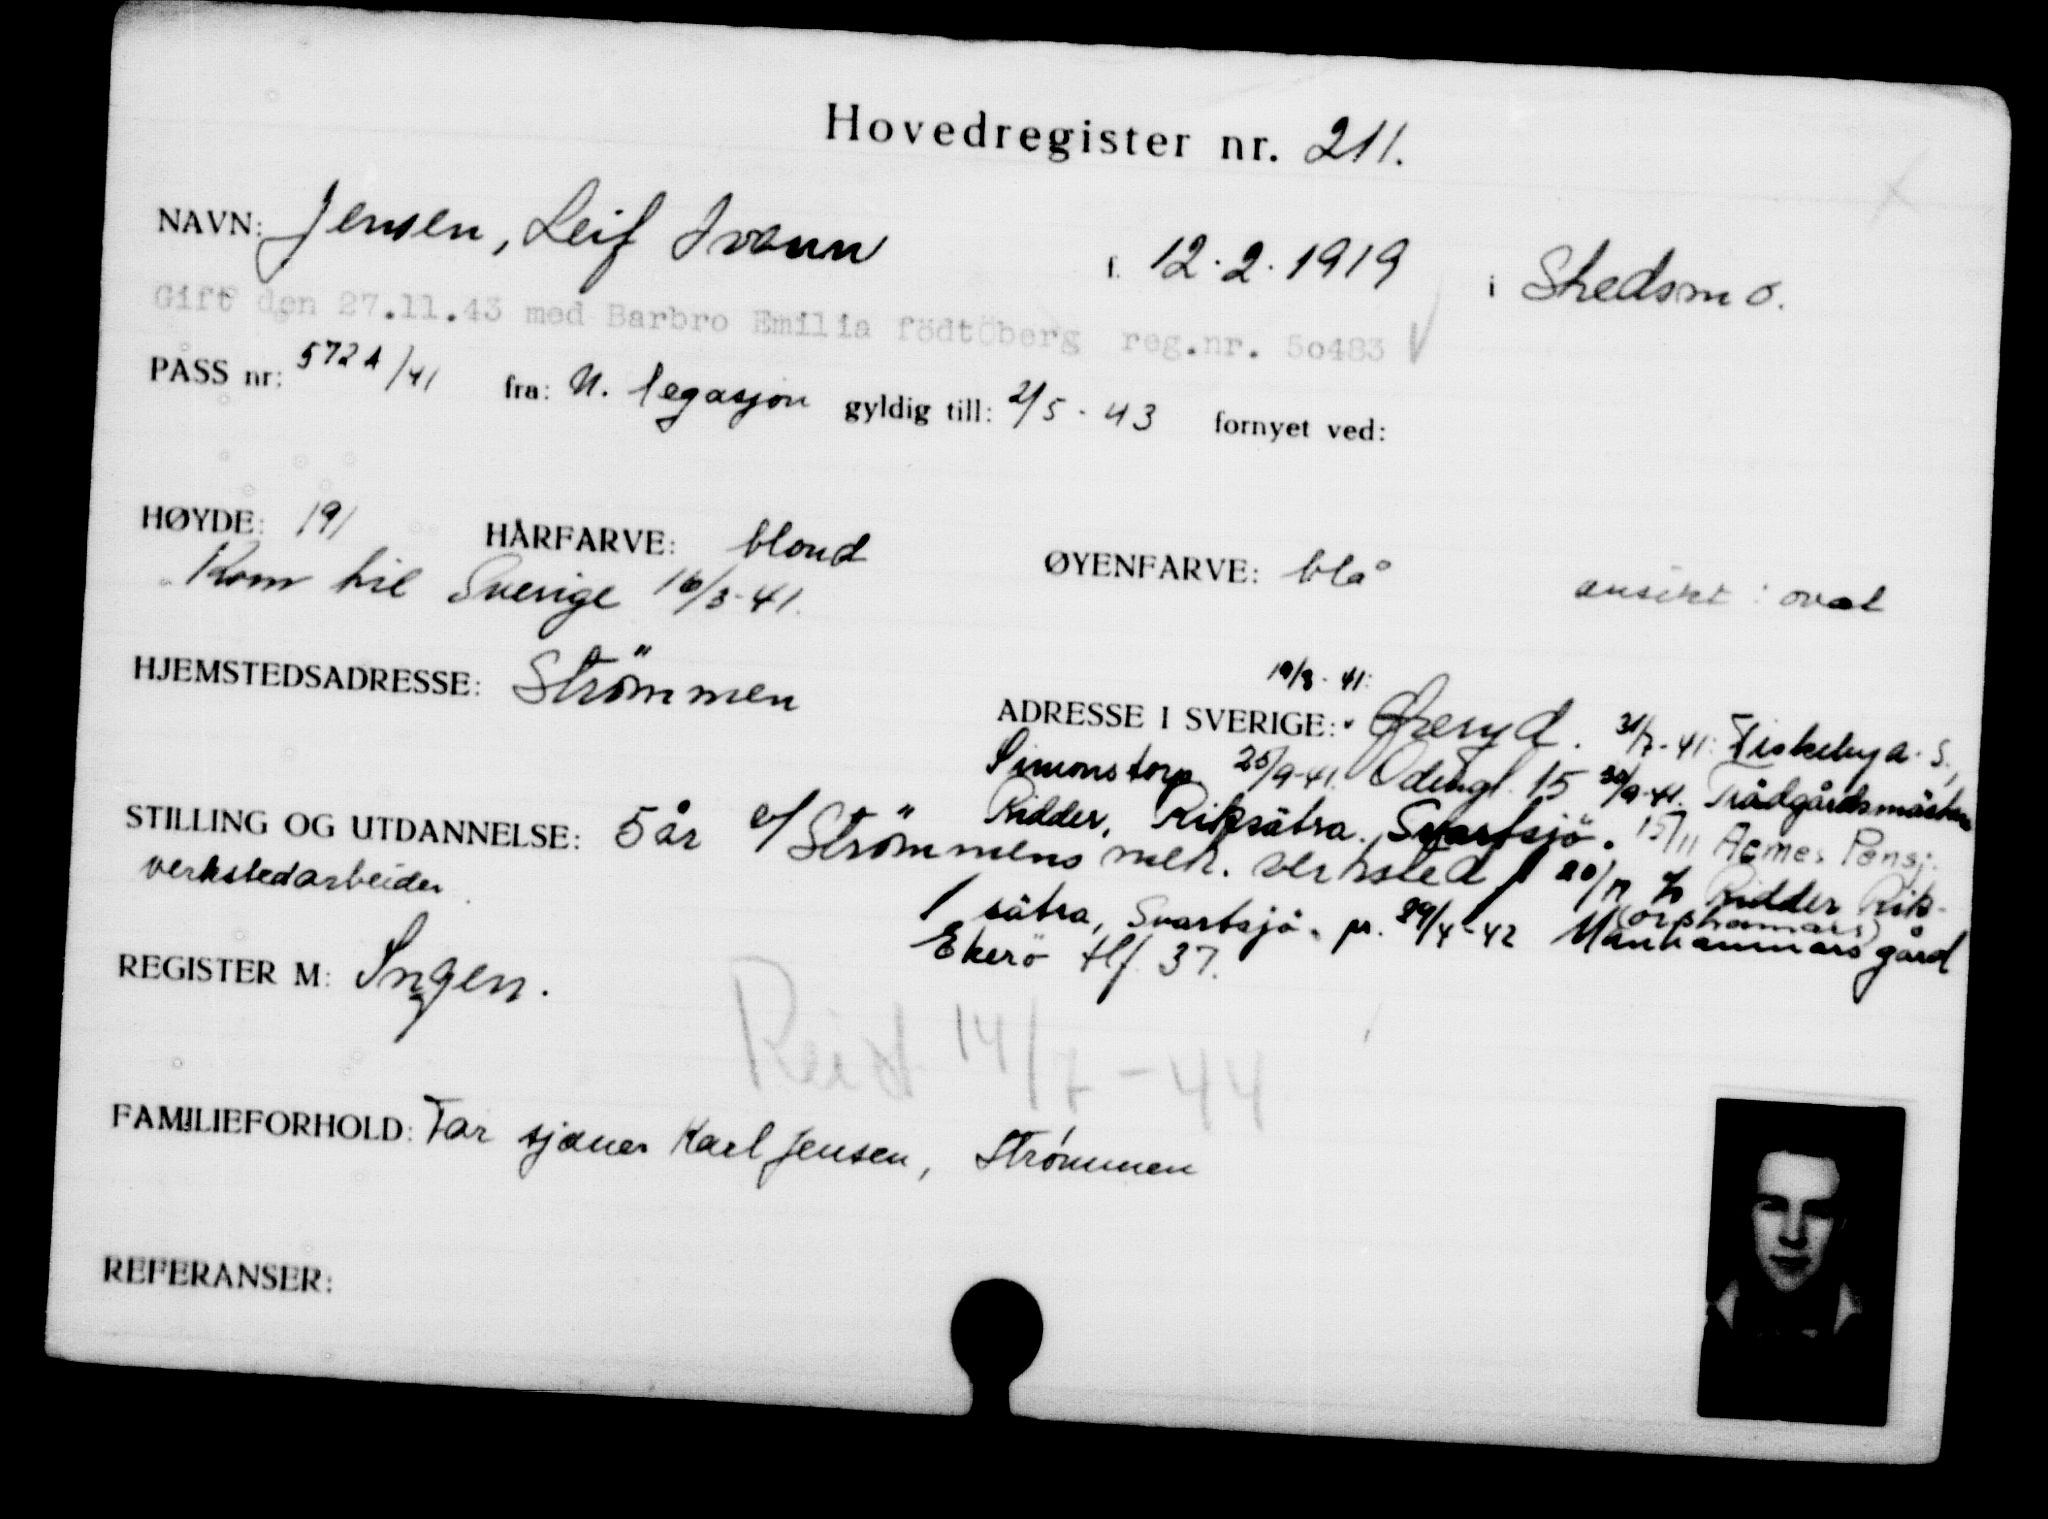 Hovedregister nr. 211.
NAVN: Jensen, Leif Ivann f. 12.2.1919 i Skedsmo.
Gift den 27.11.43 med Barbro Emilia född Öberg reg.nr. 50483 √
PASS nr: 572A/41 fra: N. legasjon gyldig till: 2/5-43 fornyet ved:
HØYDE: 191 HÅRFARVE: blond ØYENFARVE: blå ansikt: oval
Kom til Sverige 16/3-41.
HJEMSTEDSADRESSE: Strömmen
19/3-41:
ADRESSE I SVERIGE: Öreryd. 31/7-41: Fiskeby a.s,
Simonstorp 25/9-41. Odengt. 15 30/9-41. Trädgårdsmästare
Ridder, Riksätra. Svartsjö. 15/11 Agnes Pensj.
STILLING OG UTDANNELSE: 5 år v/ Strömmens mek. verksted
verkstedarbeider
20/11 Ridder Rik-
sätra, Svartsjö. pr. 29/4-42 Manhammars gård
Ekerö tlf. 37.
REGISTER M: Ingen.
Reist 14/7-44
FAMILIEFORHOLD: Far sjauer Karl Jensen, Strømmen
REFERANSER: